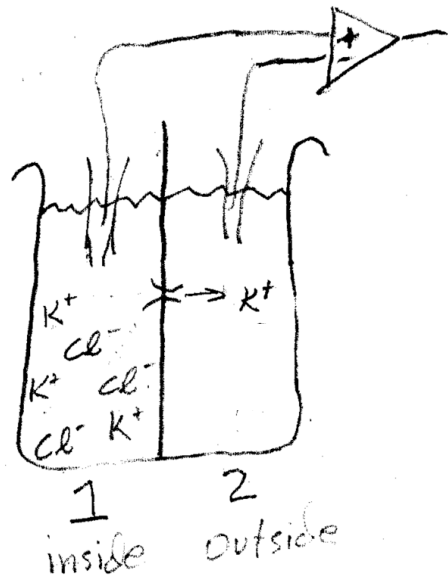 +
-
K⁺ → K⁺
Cl⁻
K⁺ Cl⁻
Cl⁻ K⁺
1 2
inside outside